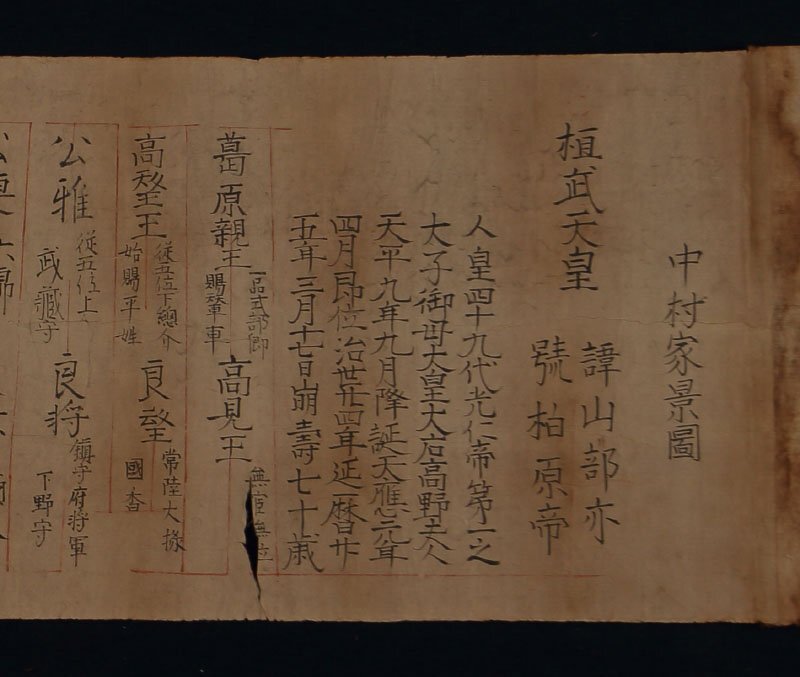 中村家景圖
桓武天皇
諱山部亦
號柏原帝
人皇四十九代光仁帝第一之
太子御母太皇太后高野夫人
天平九年九月降誕天應元年
四月即位治世廿四年延暦廿
五年三月十七日崩壽七十歳
葛原親王
一品式部卿
賜輦車
高見王
無官無位
高望王
従五位下總介
始賜平姓
良望
常陸大掾
國香
公雅
従五位上
武藏守
良将
鎮守府将軍
下野守